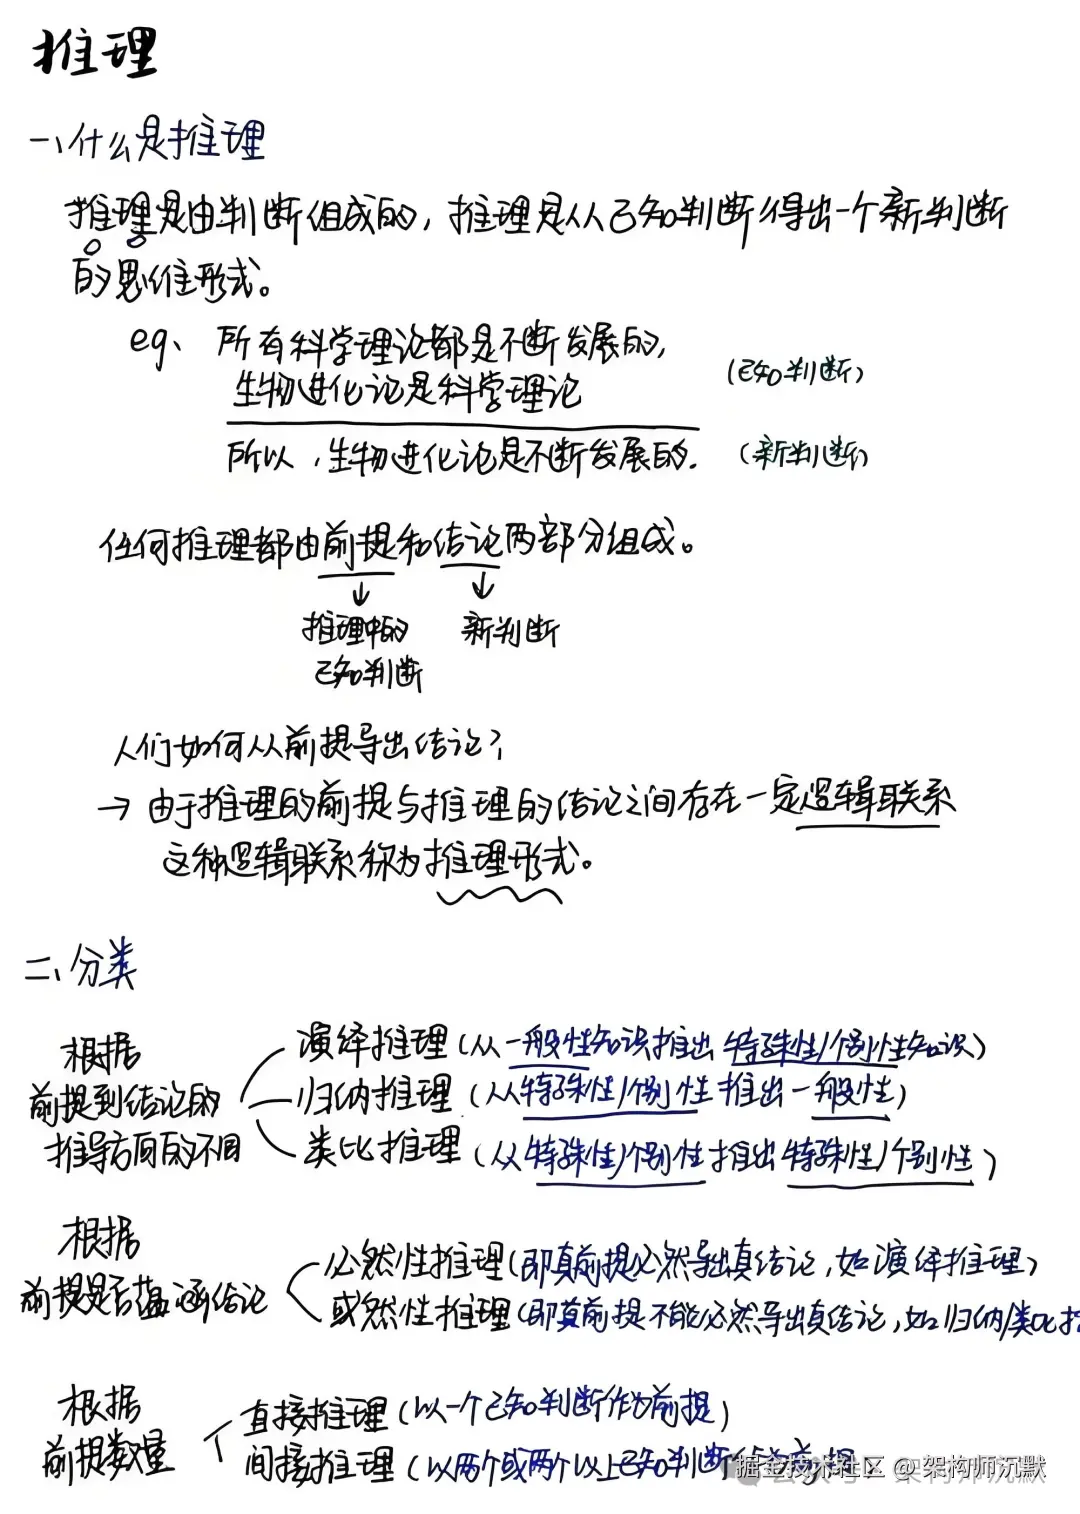 推理
一、什么是推理
推理是由判断组成的，推理是从已知判断得出一个新判断
的思维形式。
eg、所有科学理论都是不断发展的，
生物进化论是科学理论
（已知判断）
所以，生物进化论是不断发展的.（新判断）
任何推理都由前提和结论两部分组成。
推理中的 新判断
已知判断
人们如何从前提导出结论？
→ 由于推理的前提与推理的结论之间存在一定逻辑联系
这种逻辑联系称为推理形式。
二、分类
根据
前提到结论的
推导方向的不同
演绎推理（从一般性知识推出特殊性/个别性知识）
归纳推理（从特殊性/个别性推出一般性）
类比推理（从特殊性/个别性推出特殊性/个别性）
根据
前提是否蕴涵结论
必然性推理（即真前提必然导出真结论，如演绎推理）
或然性推理（即真前提不能必然导出真结论，如归纳/类比
根据
前提数量
直接推理（以一个已知判断作为前提）
间接推理（以两个或两个以上已知判断
掘金技术社区 @ 架构师沉默